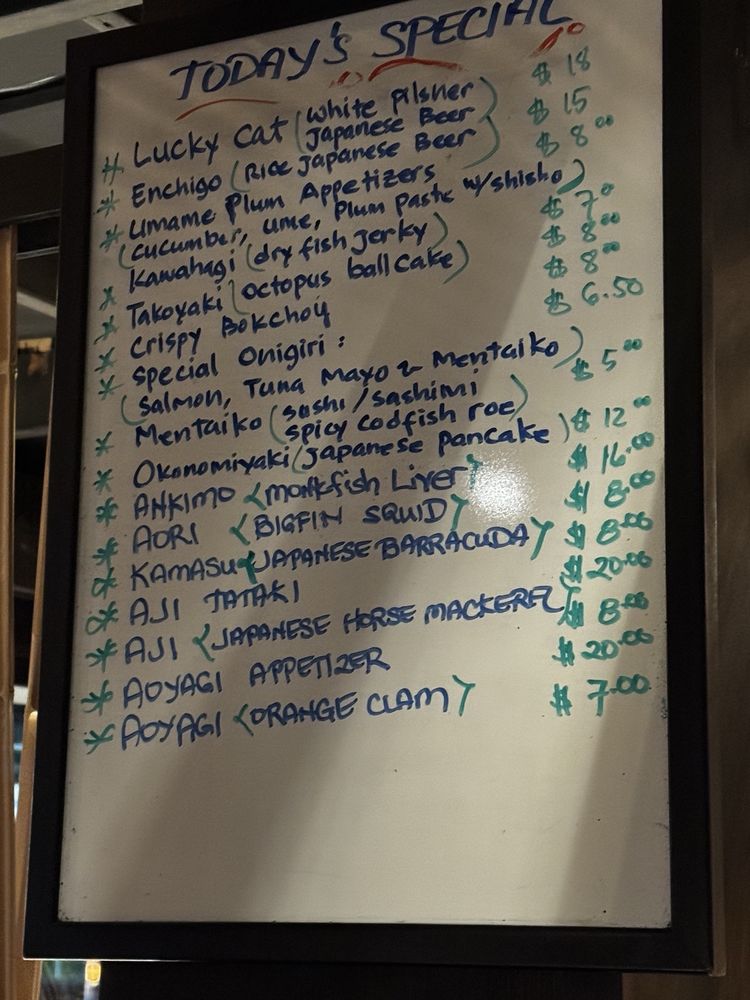 TODAY'S SPECIAL
* Lucky Cat (White Pilsner Japanese Beer) $ 18
* Enchigo (Rice Japanese Beer) $ 15
* Umame Plum Appetizers $ 8.00
(Cucumber, Ume, Plum Paste w/shisho)
* Kawahagi (dry fish jerky) $ 7.0
* Takoyaki (octopus ball cake) $ 8.00
* Crispy Bokchoy $ 8.00
* Special Onigiri: $ 6.50
(Salmon, Tuna Mayo & Mentaiko)
* Mentaiko (sushi/sashimi spicy codfish roe) $ 5.00
* Okonomiyaki (Japanese pancake) $ 12.00
* ANKIMO <monkfish Liver> $ 16.00
* AORI <BIGFIN SQUID> $ 8.00
* KAMASU <JAPANESE BARRACUDA> $ 8.00
* AJI TATAKI $ 20.00
* AJI <JAPANESE HORSE MACKEREL> $ 8.00
* AOYAGI APPETIZER $ 20.00
* AOYAGI <ORANGE CLAM> $ 7.00